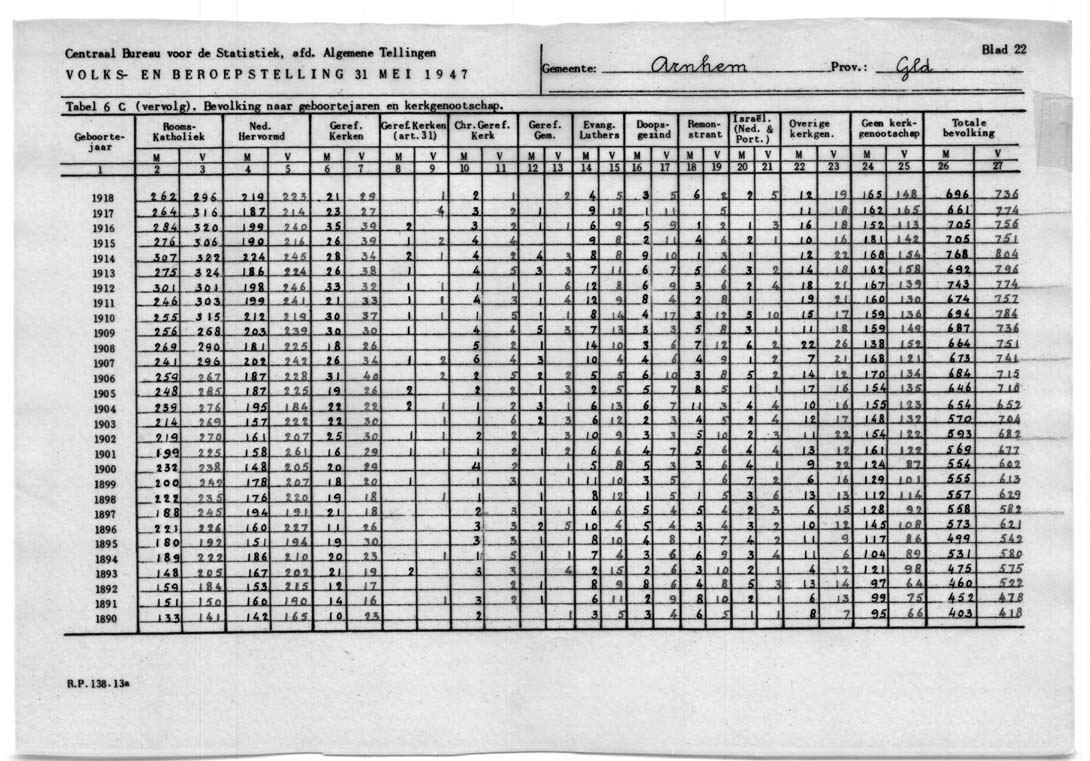 Centraal Bureau voor de Statistiek, afd. Algemene Tellingen
VOLKS- EN BEROEPSTELLING 31 MEI 1947
Gemeente: Arnhem Prov.: Gld
Blad 22
Tabel 6 C (vervolg). Bevolking naar geboortejaren en kerkgenootschap.
Geboorte-jaar Rooms-Katholiek Ned. Hervormd Geref. Kerken Geref.Kerken (art.31) Chr.Geref. Kerk Geref. Gem. Evang. Luthers Doopsgezind Remonstrant Israël. (Ned. & Port.) Overige kerkgen. Geen kerkgenootschap Totale bevolking
M V M V M V M V M V M V M V M V M V M V M V M V M V
1 2 3 4 5 6 7 8 9 10 11 12 13 14 15 16 17 18 19 20 21 22 23 24 25 26 27
1918 262 296 219 223 21 29 1 2 1 2 4 5 3 5 6 2 2 5 12 19 165 148 696 736
1917 264 316 187 214 23 27 4 3 2 1 9 12 1 11 5 11 18 162 165 661 774
1916 284 320 199 240 35 39 2 3 2 1 1 6 9 5 9 1 2 1 3 16 18 152 113 705 756
1915 276 306 190 216 26 39 1 2 4 4 9 8 2 11 4 6 2 1 10 16 181 142 705 751
1914 307 322 224 245 28 34 2 1 4 2 4 3 8 8 9 10 1 3 1 12 22 168 154 768 804
1913 275 324 186 224 26 38 1 4 5 3 3 7 11 6 7 5 6 3 2 14 18 162 158 692 796
1912 301 301 198 246 33 32 1 1 1 1 1 6 12 8 6 9 3 6 2 4 18 21 167 139 743 774
1911 246 303 199 241 21 33 1 1 4 3 1 4 12 9 8 4 2 8 1 19 21 160 130 674 757
1910 255 315 212 219 30 37 1 1 1 5 1 8 14 4 17 3 12 5 10 15 17 159 136 694 784
1909 256 268 203 239 30 30 1 4 4 5 3 7 13 3 3 5 8 3 1 11 18 159 149 687 736
1908 269 290 181 225 18 26 5 2 1 14 10 3 6 7 12 6 2 22 26 138 152 664 751
1907 241 296 202 242 26 34 1 2 6 4 3 10 4 4 6 4 9 1 2 7 21 168 121 673 741
1906 259 267 187 228 31 40 2 2 5 2 2 5 5 6 10 3 8 5 2 14 12 170 134 684 715
1905 248 265 187 225 19 26 2 2 2 1 3 2 5 5 7 8 5 1 1 17 16 154 135 646 710
1904 239 276 195 184 22 22 2 1 1 2 3 1 6 13 6 7 11 3 4 4 10 16 155 123 654 652
1903 214 269 157 222 22 30 1 1 6 2 3 6 12 2 3 4 5 2 4 12 17 148 132 570 704
1902 219 270 161 207 25 30 1 1 2 2 3 10 9 3 3 5 10 2 3 11 22 154 122 593 682
1901 199 225 158 261 16 29 1 1 1 2 1 2 6 6 4 7 5 6 4 4 13 12 161 122 569 677
1900 232 238 148 205 20 29 4 2 1 5 8 5 3 3 6 4 1 9 22 124 87 554 602
1899 200 242 178 207 18 20 1 1 3 1 11 10 3 5 6 7 2 6 16 129 101 555 613
1898 222 235 176 220 19 18 1 1 1 8 12 1 5 1 5 3 6 13 13 112 114 557 629
1897 188 245 194 191 21 18 2 3 1 6 6 5 4 5 4 2 3 6 15 128 92 558 582
1896 221 226 160 227 11 26 3 3 2 5 10 4 5 4 3 4 3 2 10 12 145 108 573 621
1895 180 192 151 194 19 30 3 3 1 8 10 4 8 1 7 4 2 11 9 117 86 499 542
1894 189 222 186 210 20 23 1 1 5 1 7 4 3 6 6 9 3 4 11 6 104 89 531 580
1893 148 205 167 202 21 19 2 3 3 4 2 15 2 6 3 10 2 1 4 12 121 98 475 575
1892 159 184 153 215 12 17 2 1 8 9 8 6 4 8 5 3 13 14 97 64 460 522
1891 151 150 160 190 14 16 1 3 2 1 6 11 2 9 8 10 2 1 6 13 99 75 452 478
1890 133 141 142 165 10 23 2 1 3 5 3 4 6 5 1 1 8 7 95 66 403 418
R.P.138-13a